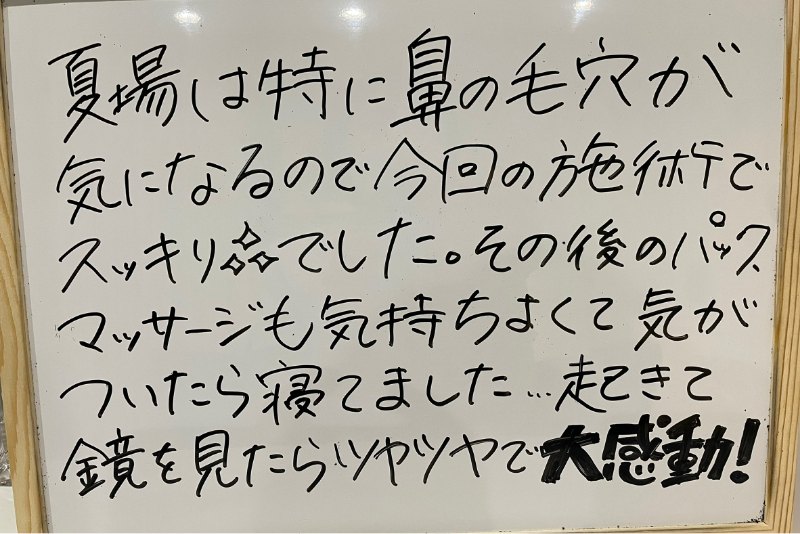 夏場は特に鼻の毛穴が
気になるので今回の施術で
スッキリ✧✧✧でした。その後のパック、
マッサージも気持ちよくて気が
ついたら寝てました…起きて
鏡を見たらツヤツヤで大感動!